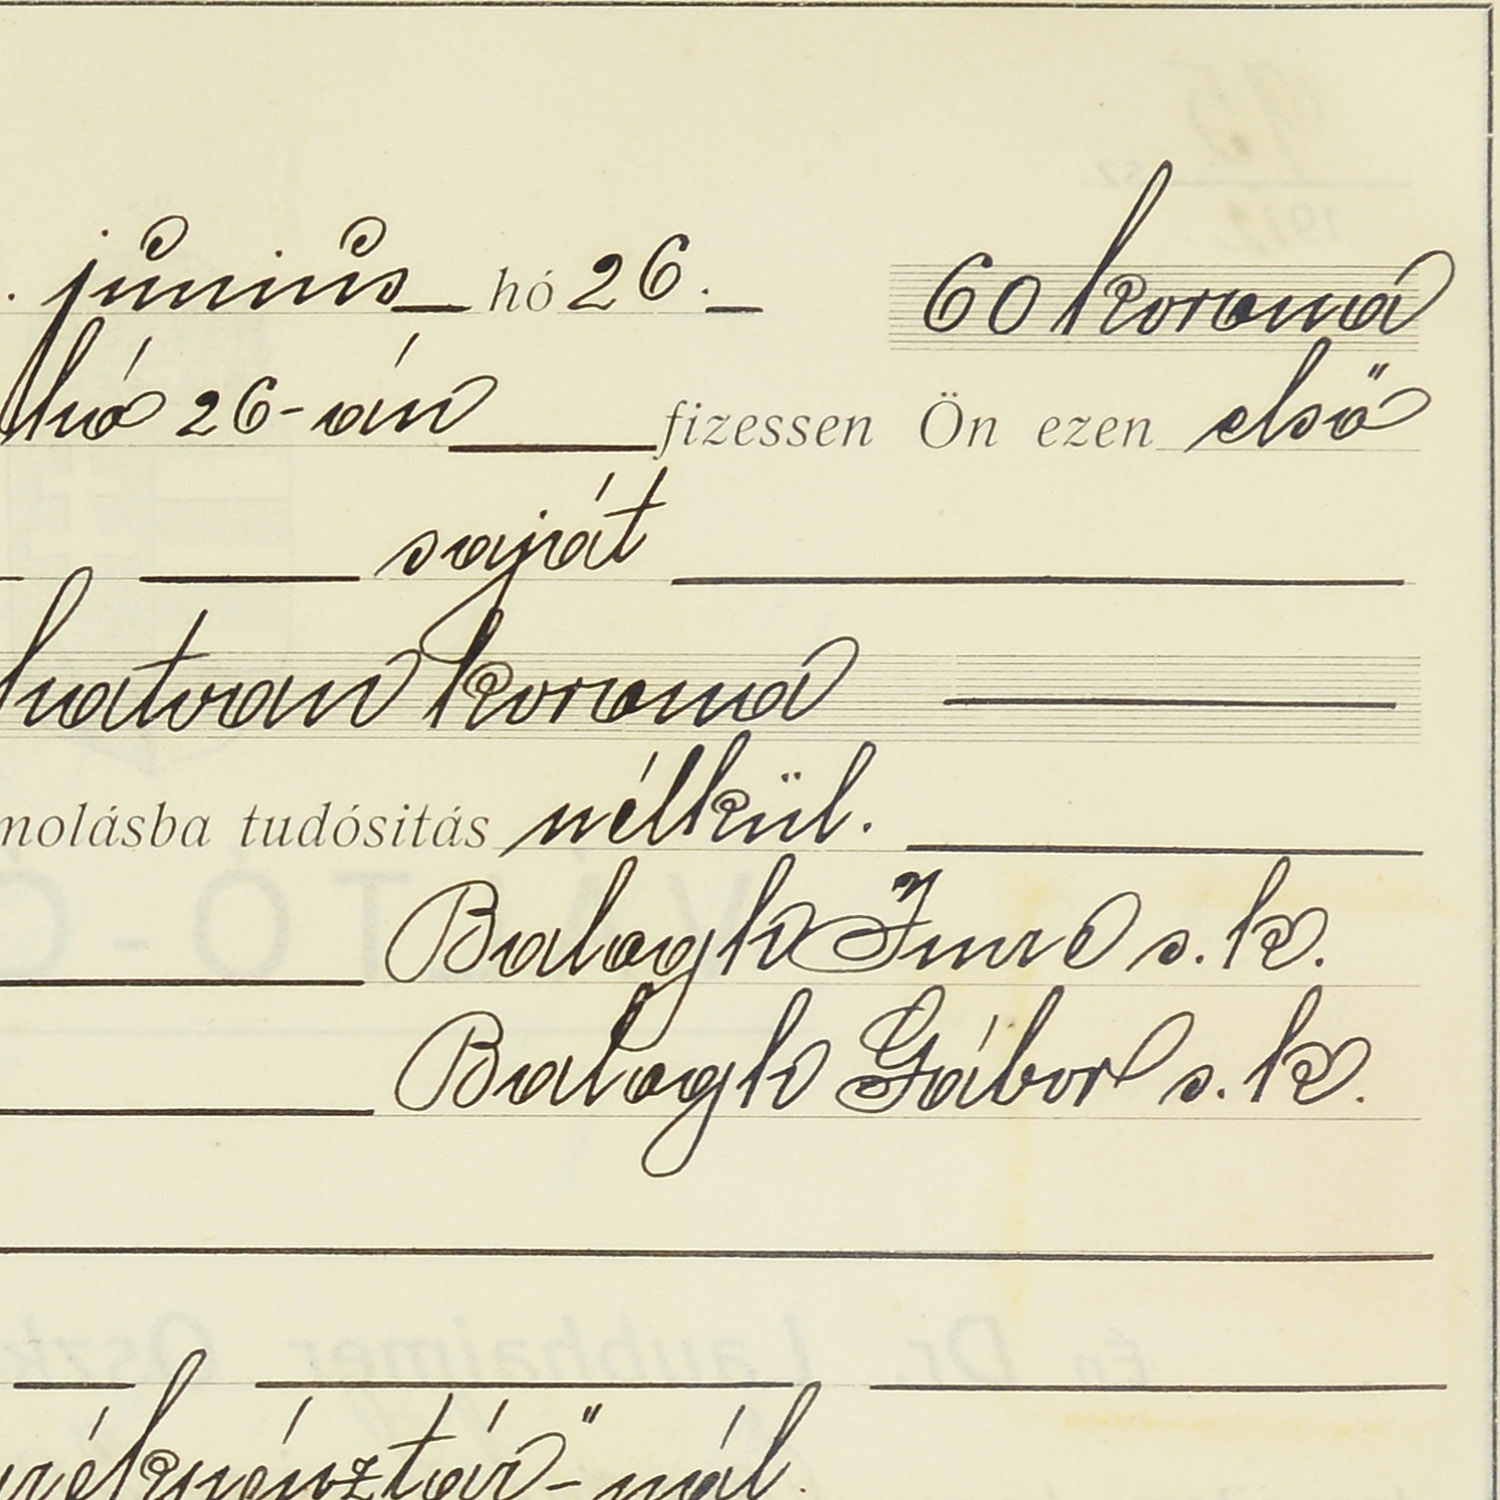 . június hó 26. 60 korona
hó 26-án fizessen Ön ezen első
saját
hatvan korona
molásba tudósitás nélkül.
Balogh Imre s. k.
Balogh Gábor s. k.
rékpénztár"-nál.